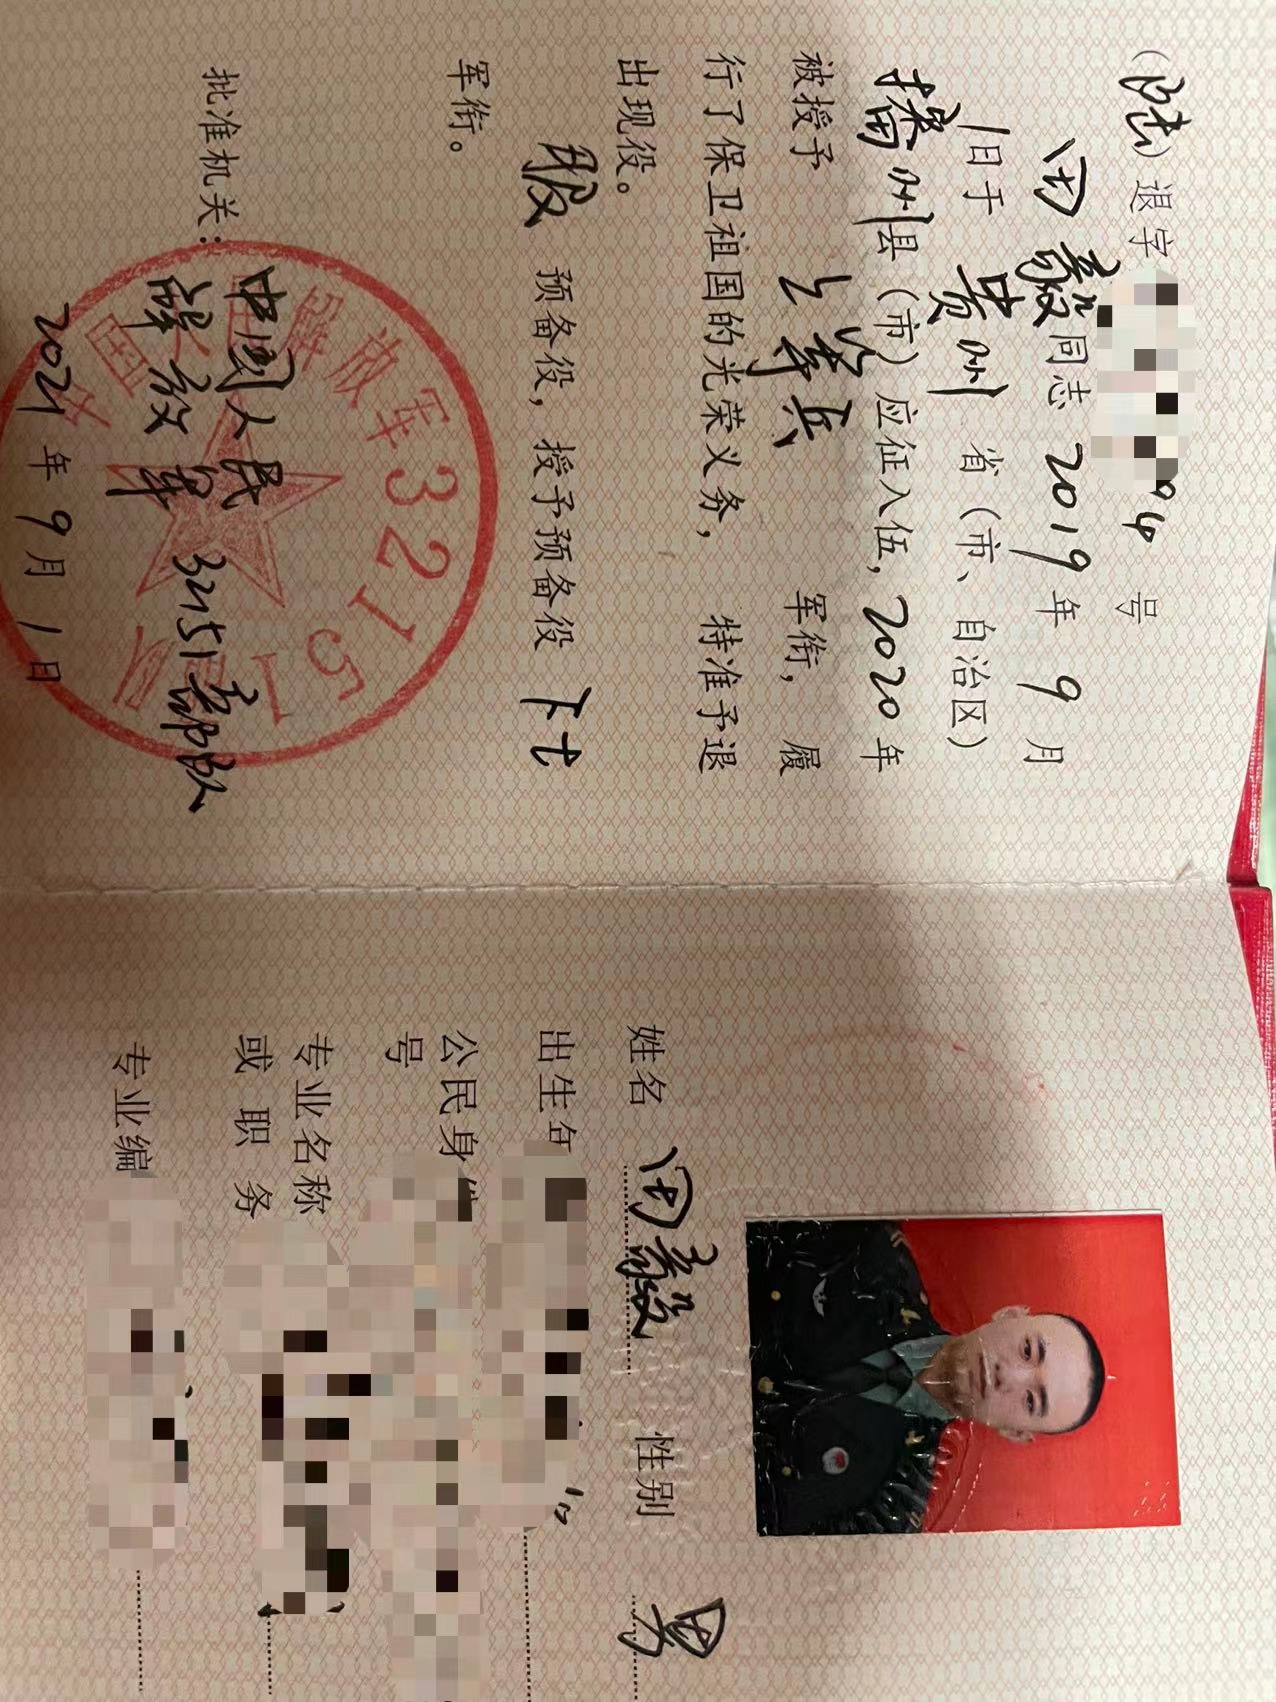 （陆）退字 94 号
田毅同志 2019 年 9 月
1日于 贵州 省（市、自治区）
播州县（市）应征入伍，2020 年
被授予 上等兵 军衔，履
行了保卫祖国的光荣义务，特准予退
出现役。
服 预备役，授予预备役 下士
军衔。
批准机关：中国人民
解放军 32151部队
2021 年 9 月 1 日
姓名 田毅 性别 男
出生年
公民身份
号
专业名称
或职务
专业编